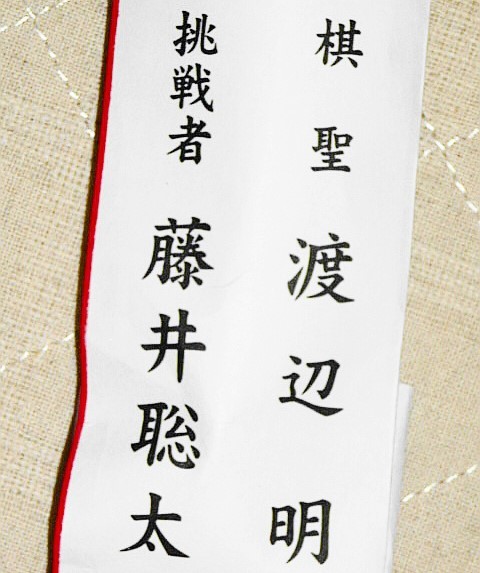 棋聖 渡辺 明
挑戦者 藤井聡太